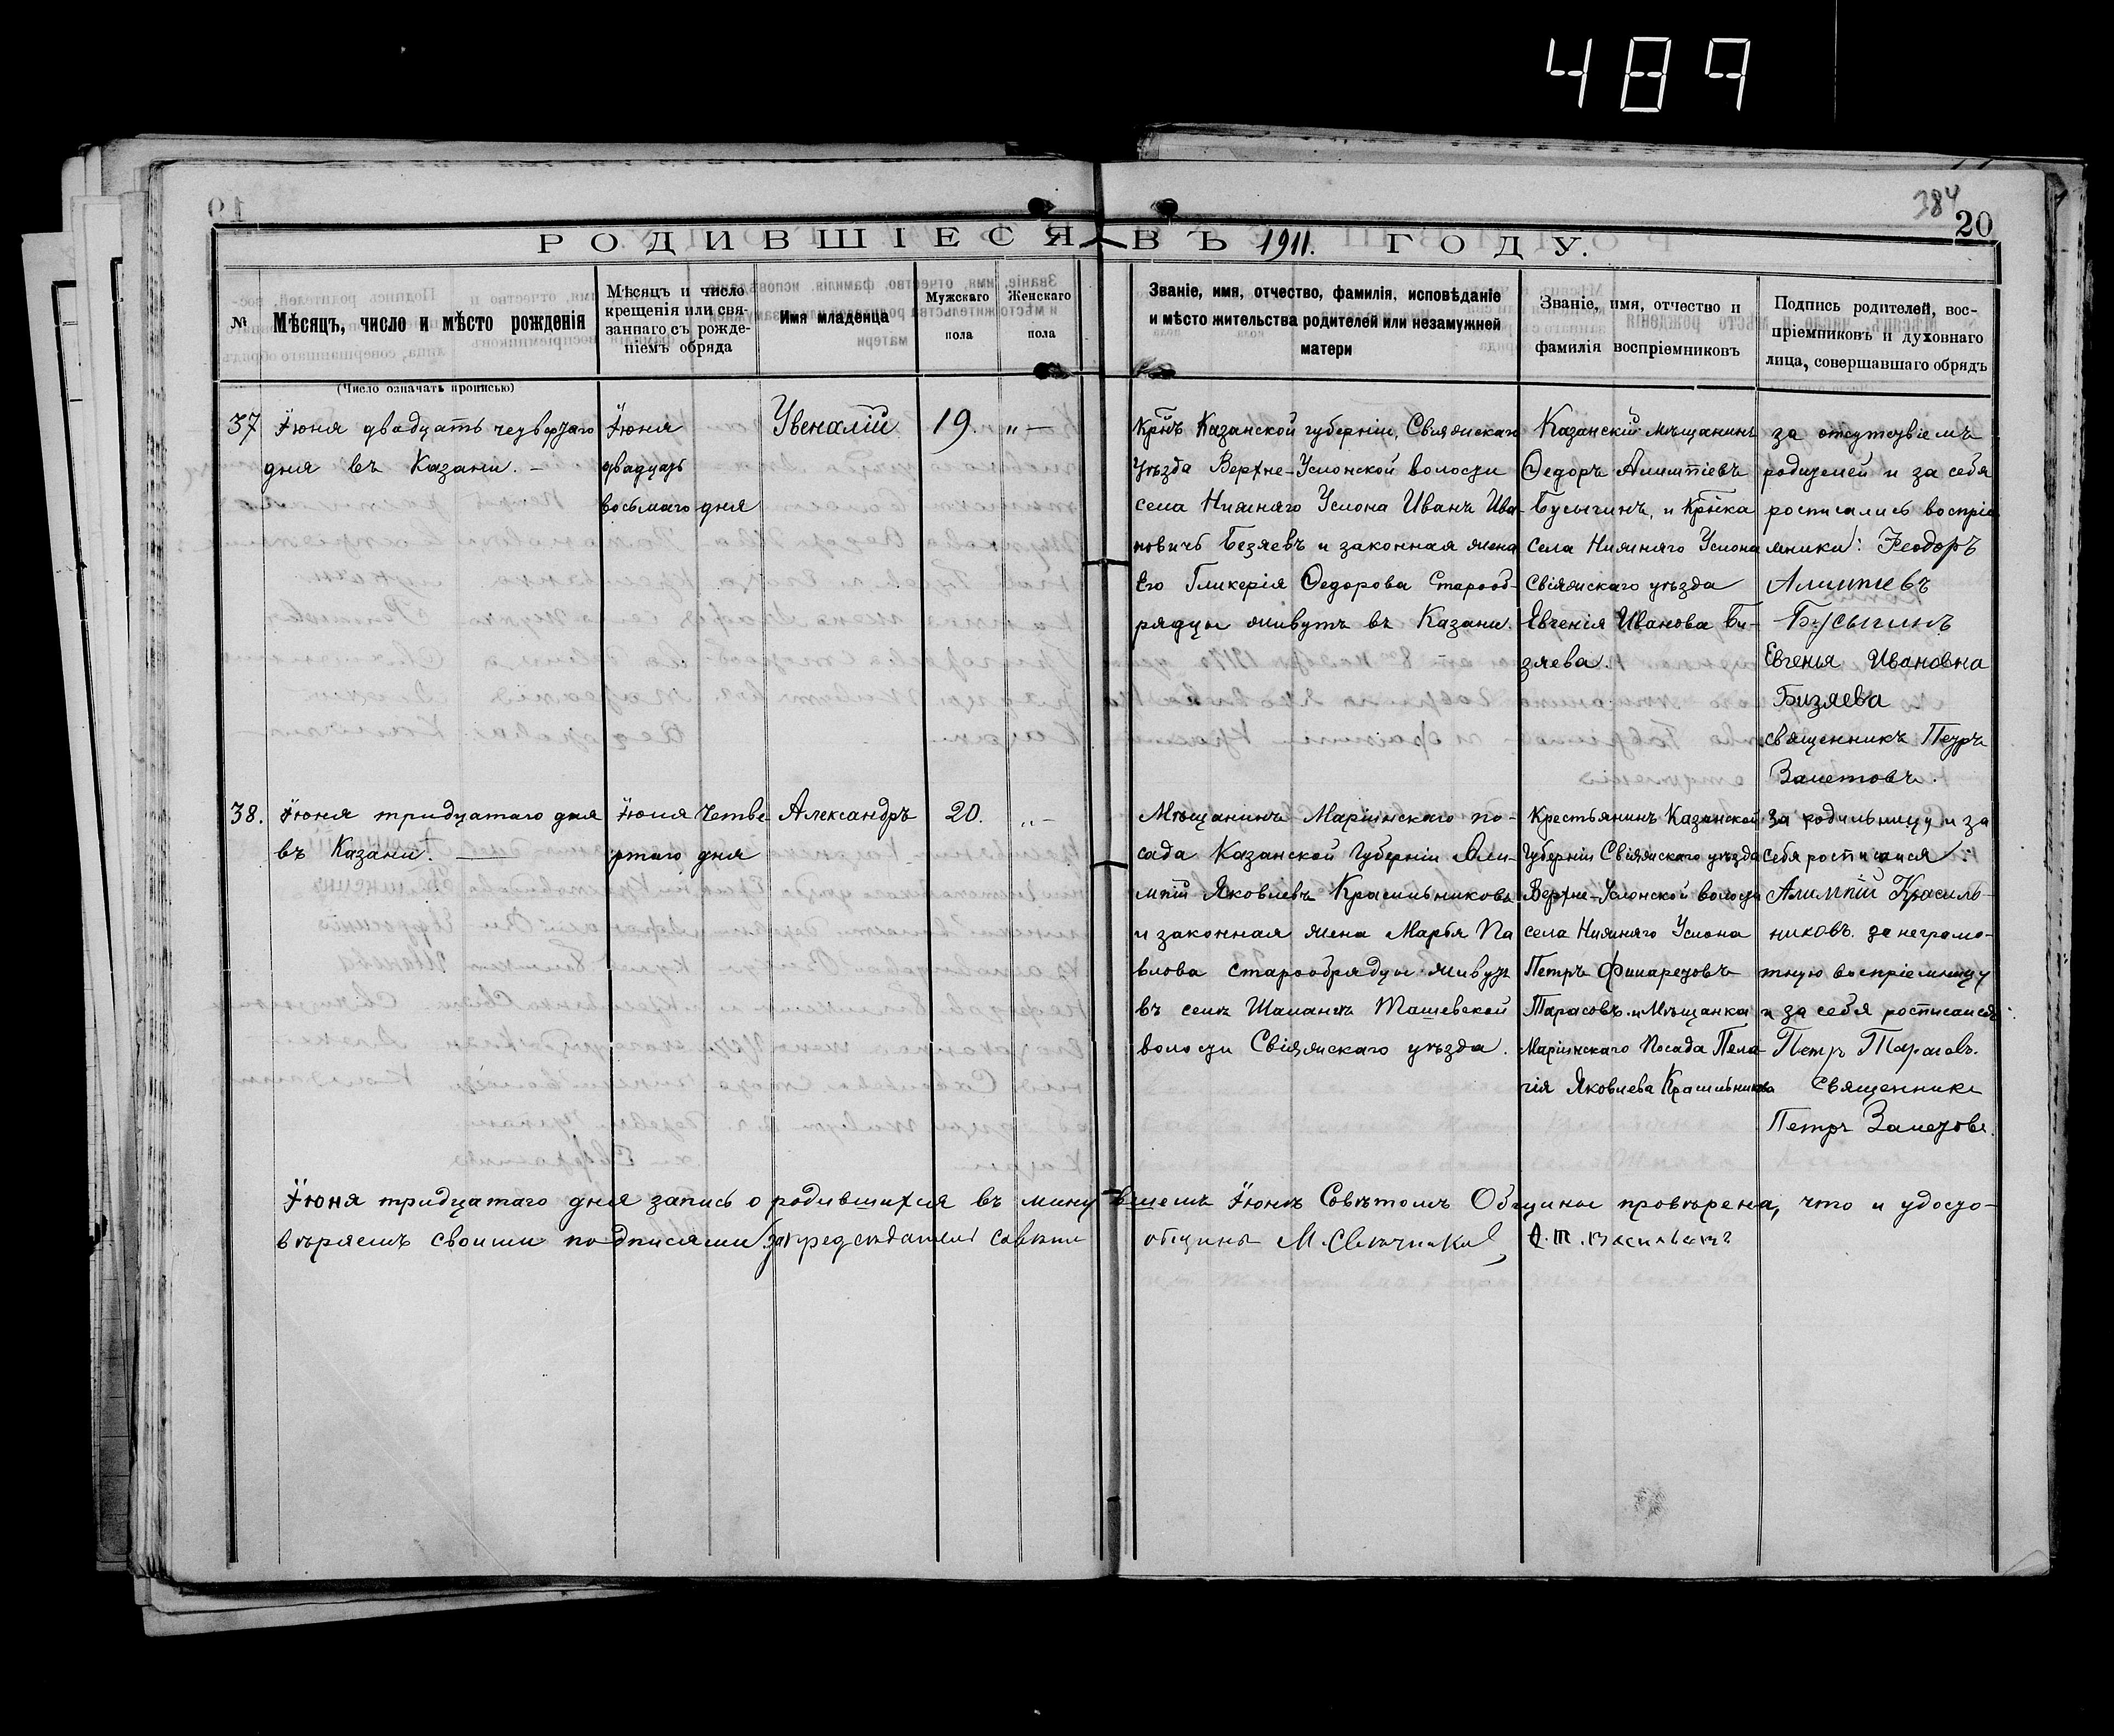 489
384
20
РОДИВШІЕСЯ ВЪ 1911. ГОДУ.
№
Мѣсяцъ, число и мѣсто рожденія
(Число означать прописью)
Мѣсяцъ и число
крещенія или свя-
заннаго съ рожде-
ніемъ обряда
Имя младенца
Мужскаго
пола
Женскаго
пола
Званіе, имя, отчество, фамилія, исповѣданіе
и мѣсто жительства родителей или незамужней
матери
Званіе, имя, отчество и
фамилія воспріемниковъ
Подпись родителей, вос-
пріемниковъ и духовнаго
лица, совершавшаго обрядъ
37
Іюня двадцать четвертаго
дня въ Казани. -
Іюня
двадцать
восьмаго дня
Увеналій
19.
„ —
Крнъ Казанской губерніи, Свіяжскаго
уѣзда Верхне-Услонской волости
села Нижняго Услона Иванъ Ива-
новичъ Безяевъ и законная жена
Его Гликерія Федорова Старооб-
рядцы живутъ въ Казани.
Казанскій мѣщанинъ
Федоръ Алимпіевъ
Бусыгинъ, и Крнка
села Нижняго Услона
Свіяжскаго уѣзда
Евгенія Иванова Би-
зяева.
за отсутсвіемъ
родителей и за себя
росписались воспріе
мники: Феодоръ
Алимпиевъ
Бусыгинъ
Евгенья Ивановна
Бизяева
священникъ Петръ
Залетовъ.
38.
Іюня тридцатаго дня
въ Казани. —
Іюля Четве
ртаго дня
Александръ
20.
„ -
Мѣщанинъ Маріинскаго по-
сада Казанской Губерніи Али-
мпій Яковлевъ Красильниковъ
и законная жена Марья Па
влова старообрядцы живутъ
въ селѣ Шаланѣ Ташевской
волости Свіяжскаго уѣзда.
Крестьянинъ Казанской
Губерніи Свіяжскаго уѣзда
Верхне-Услонской волости
села Нижняго Услона
Петръ Филаретовъ
Тарасовъ и Мѣщанка
Маріинскаго Посада Пела
гія Яковлева Красильникова
За родильницу и за
себя росписался
Алимпій Красиль-
никовъ. за неграмо-
тную воспріемницу
и за себя росписался
Петръ Тарасовъ.
Священникъ
Петръ Залетовъ.
Іюня тридцатаго дня запись о родившихся въ мину вшемъ Іюнѣ Совѣтомъ Общины провѣрена, что и удосто-
вѣряемъ своими подписями: председатель совѣта общины